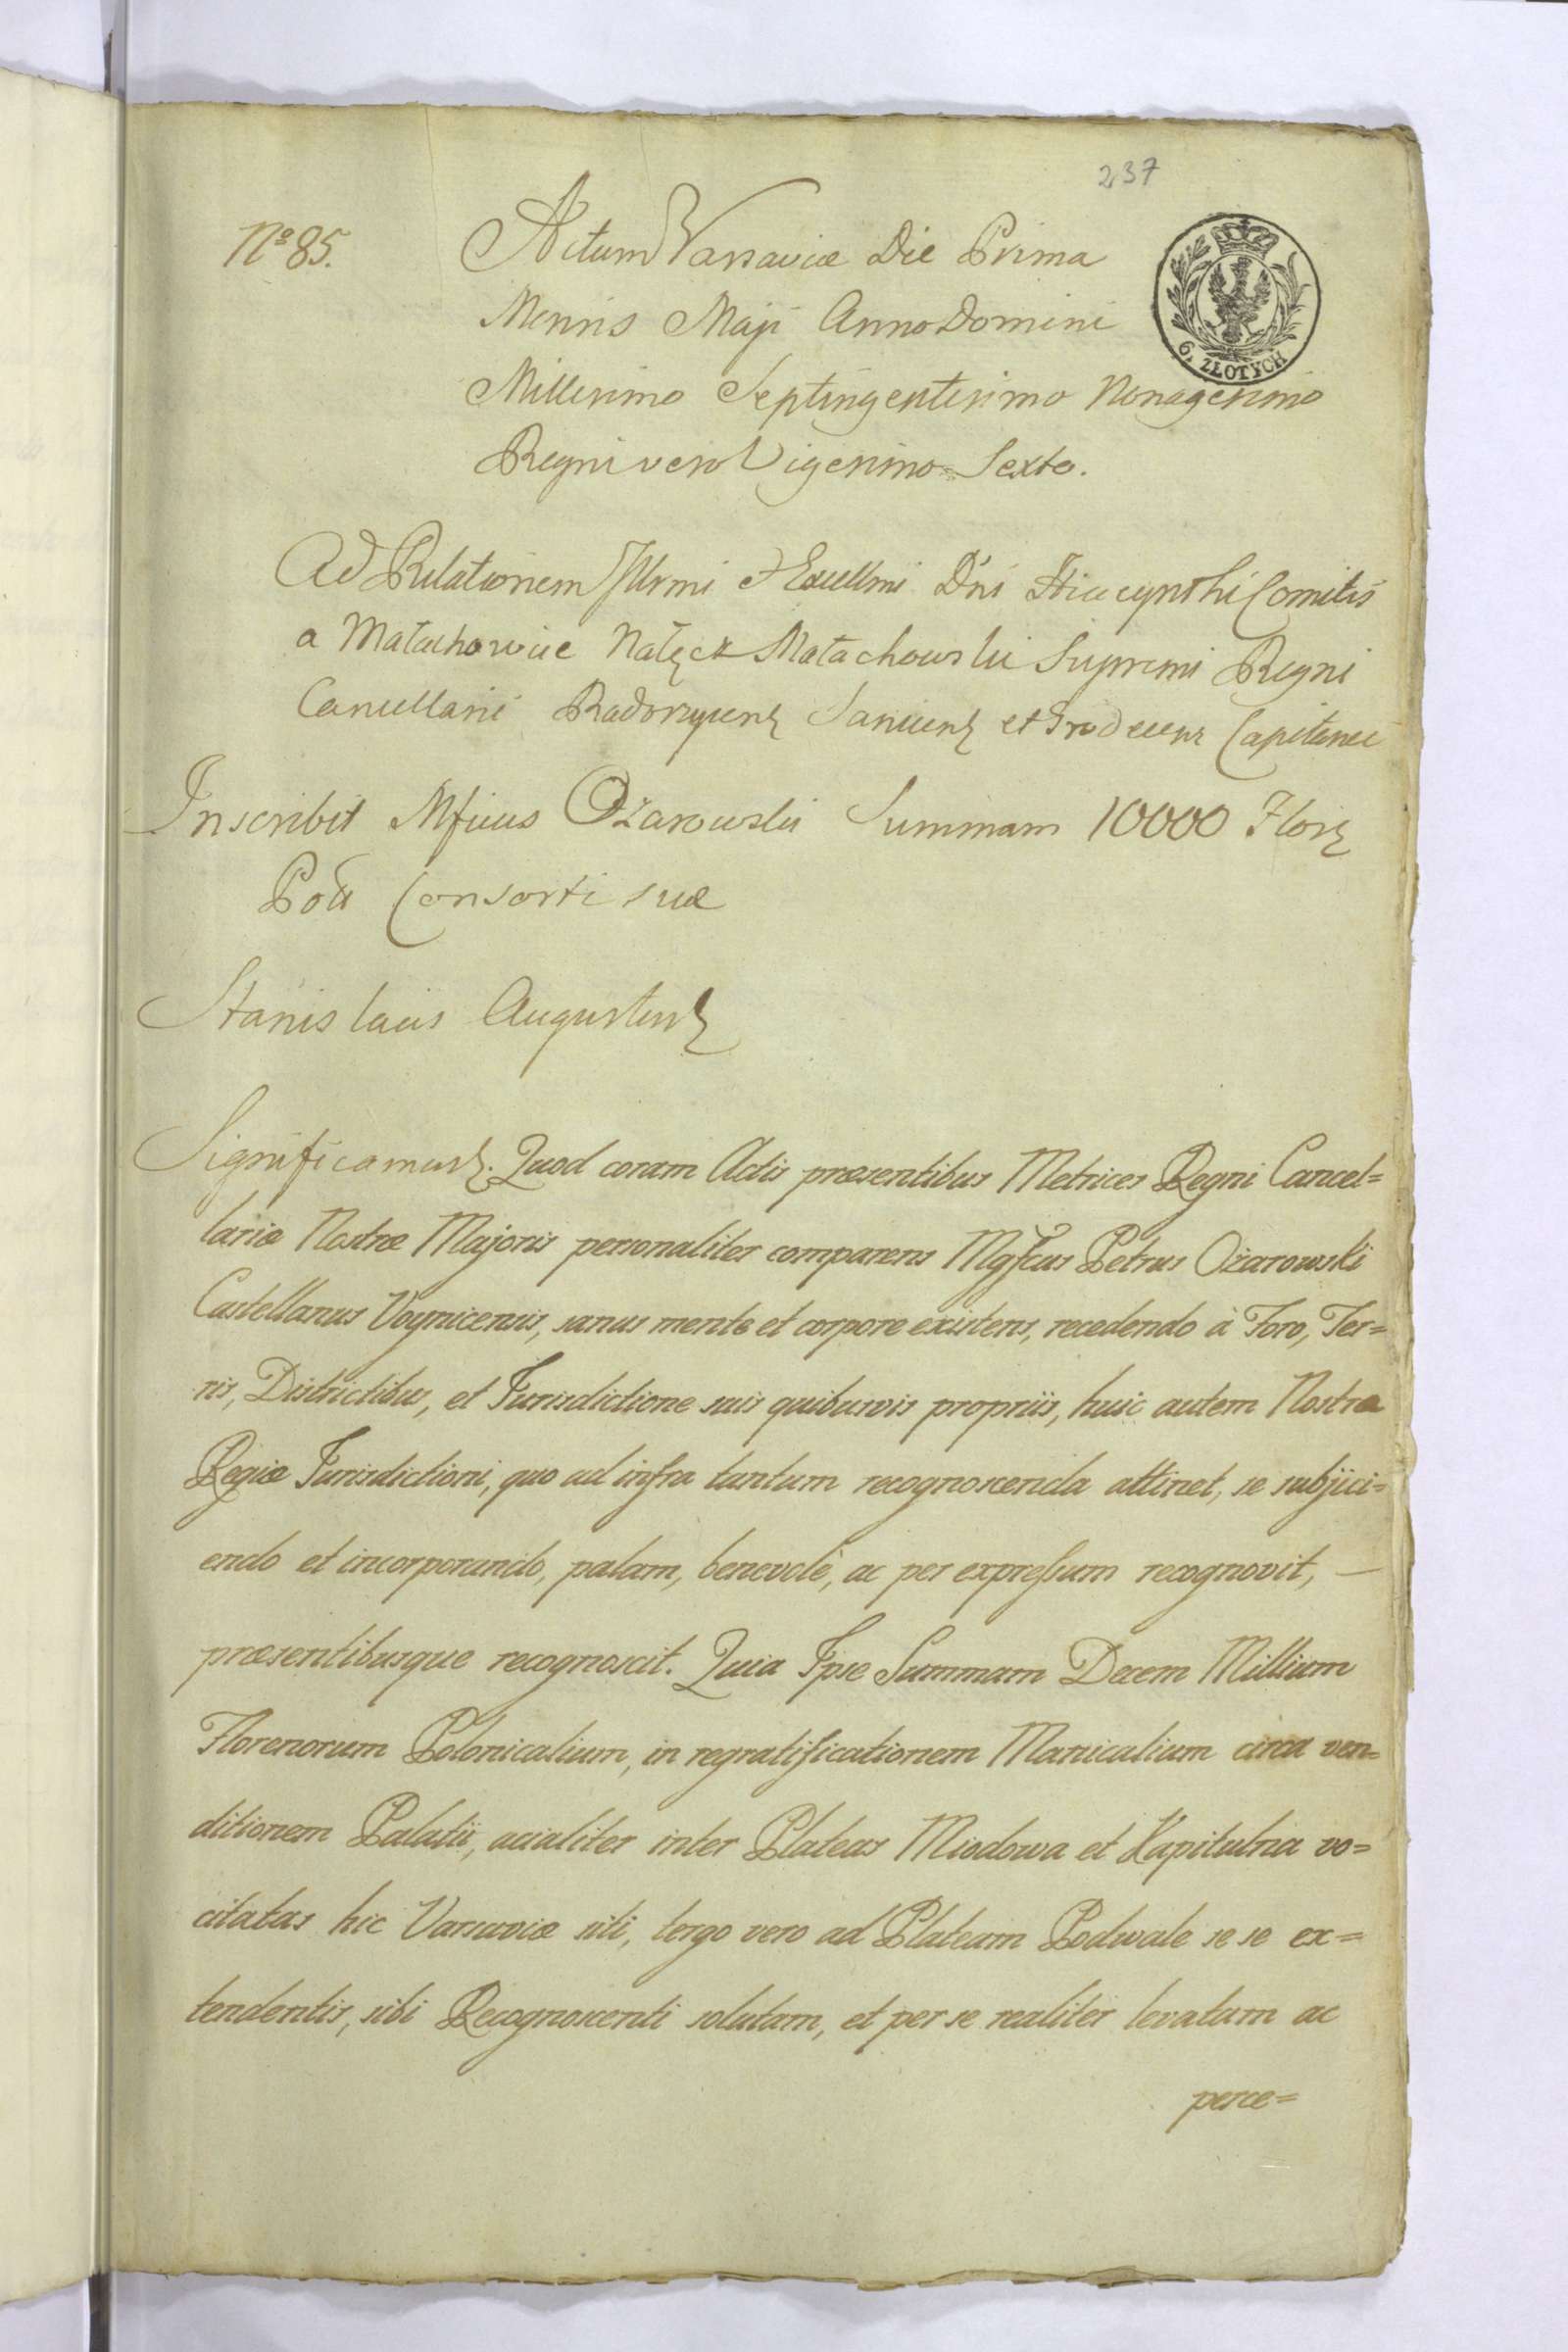 237
Nº 85.
Actum Varsaviæ Die Prima
Mensis Maji Anno Domini
Millesimo Septingentesimo Nonagesimo
Regni vero Vigesimo Sexto.
6. ZŁOTYCH
Ad Relationem Illrmi et Excellmi Dñi Hiacynthi Comitis
a Małachowice Nałęcz Małachowski Supremi Regni
Cancellarii et Capitanei
Inscribit Mficus Ożarowski Summam 10000 Flor
Poll Consorti suæ
Stanislaus Augustus
Significamus. Quod coram Actis præsentibus Metrices Regni Cancel=
lariæ Nostræ Majoris personaliter comparens Mgfcus Petrus Ożarowski
Castellanus Voynicensis, sanus mente et corpore existens, recedendo à Foro, Ter=
ris, Districtibus, et Jurisdictione suis quibusvis propriis, huic autem Nostræ
Regiæ Jurisdictioni, quo ad infra tantum recognoscenda attinet, se subjici=
endo et incorporando, palam, benevolè, ac per expressum recognovit, —
præsentibusque recognoscit. Quia Ipse Summam Decem Millium
Florenorum Polonicalium, in regratificationem Manicalium circa ven=
ditionem Palatii, acialiter inter Plateas Miodowa et Kapitulna vo=
citatas hic Varsaviæ siti, tergo vero ad Plateam Podwale se se ex=
tendentis, sibi Recognoscenti solutam, et per se realiter levatam ac
perce=